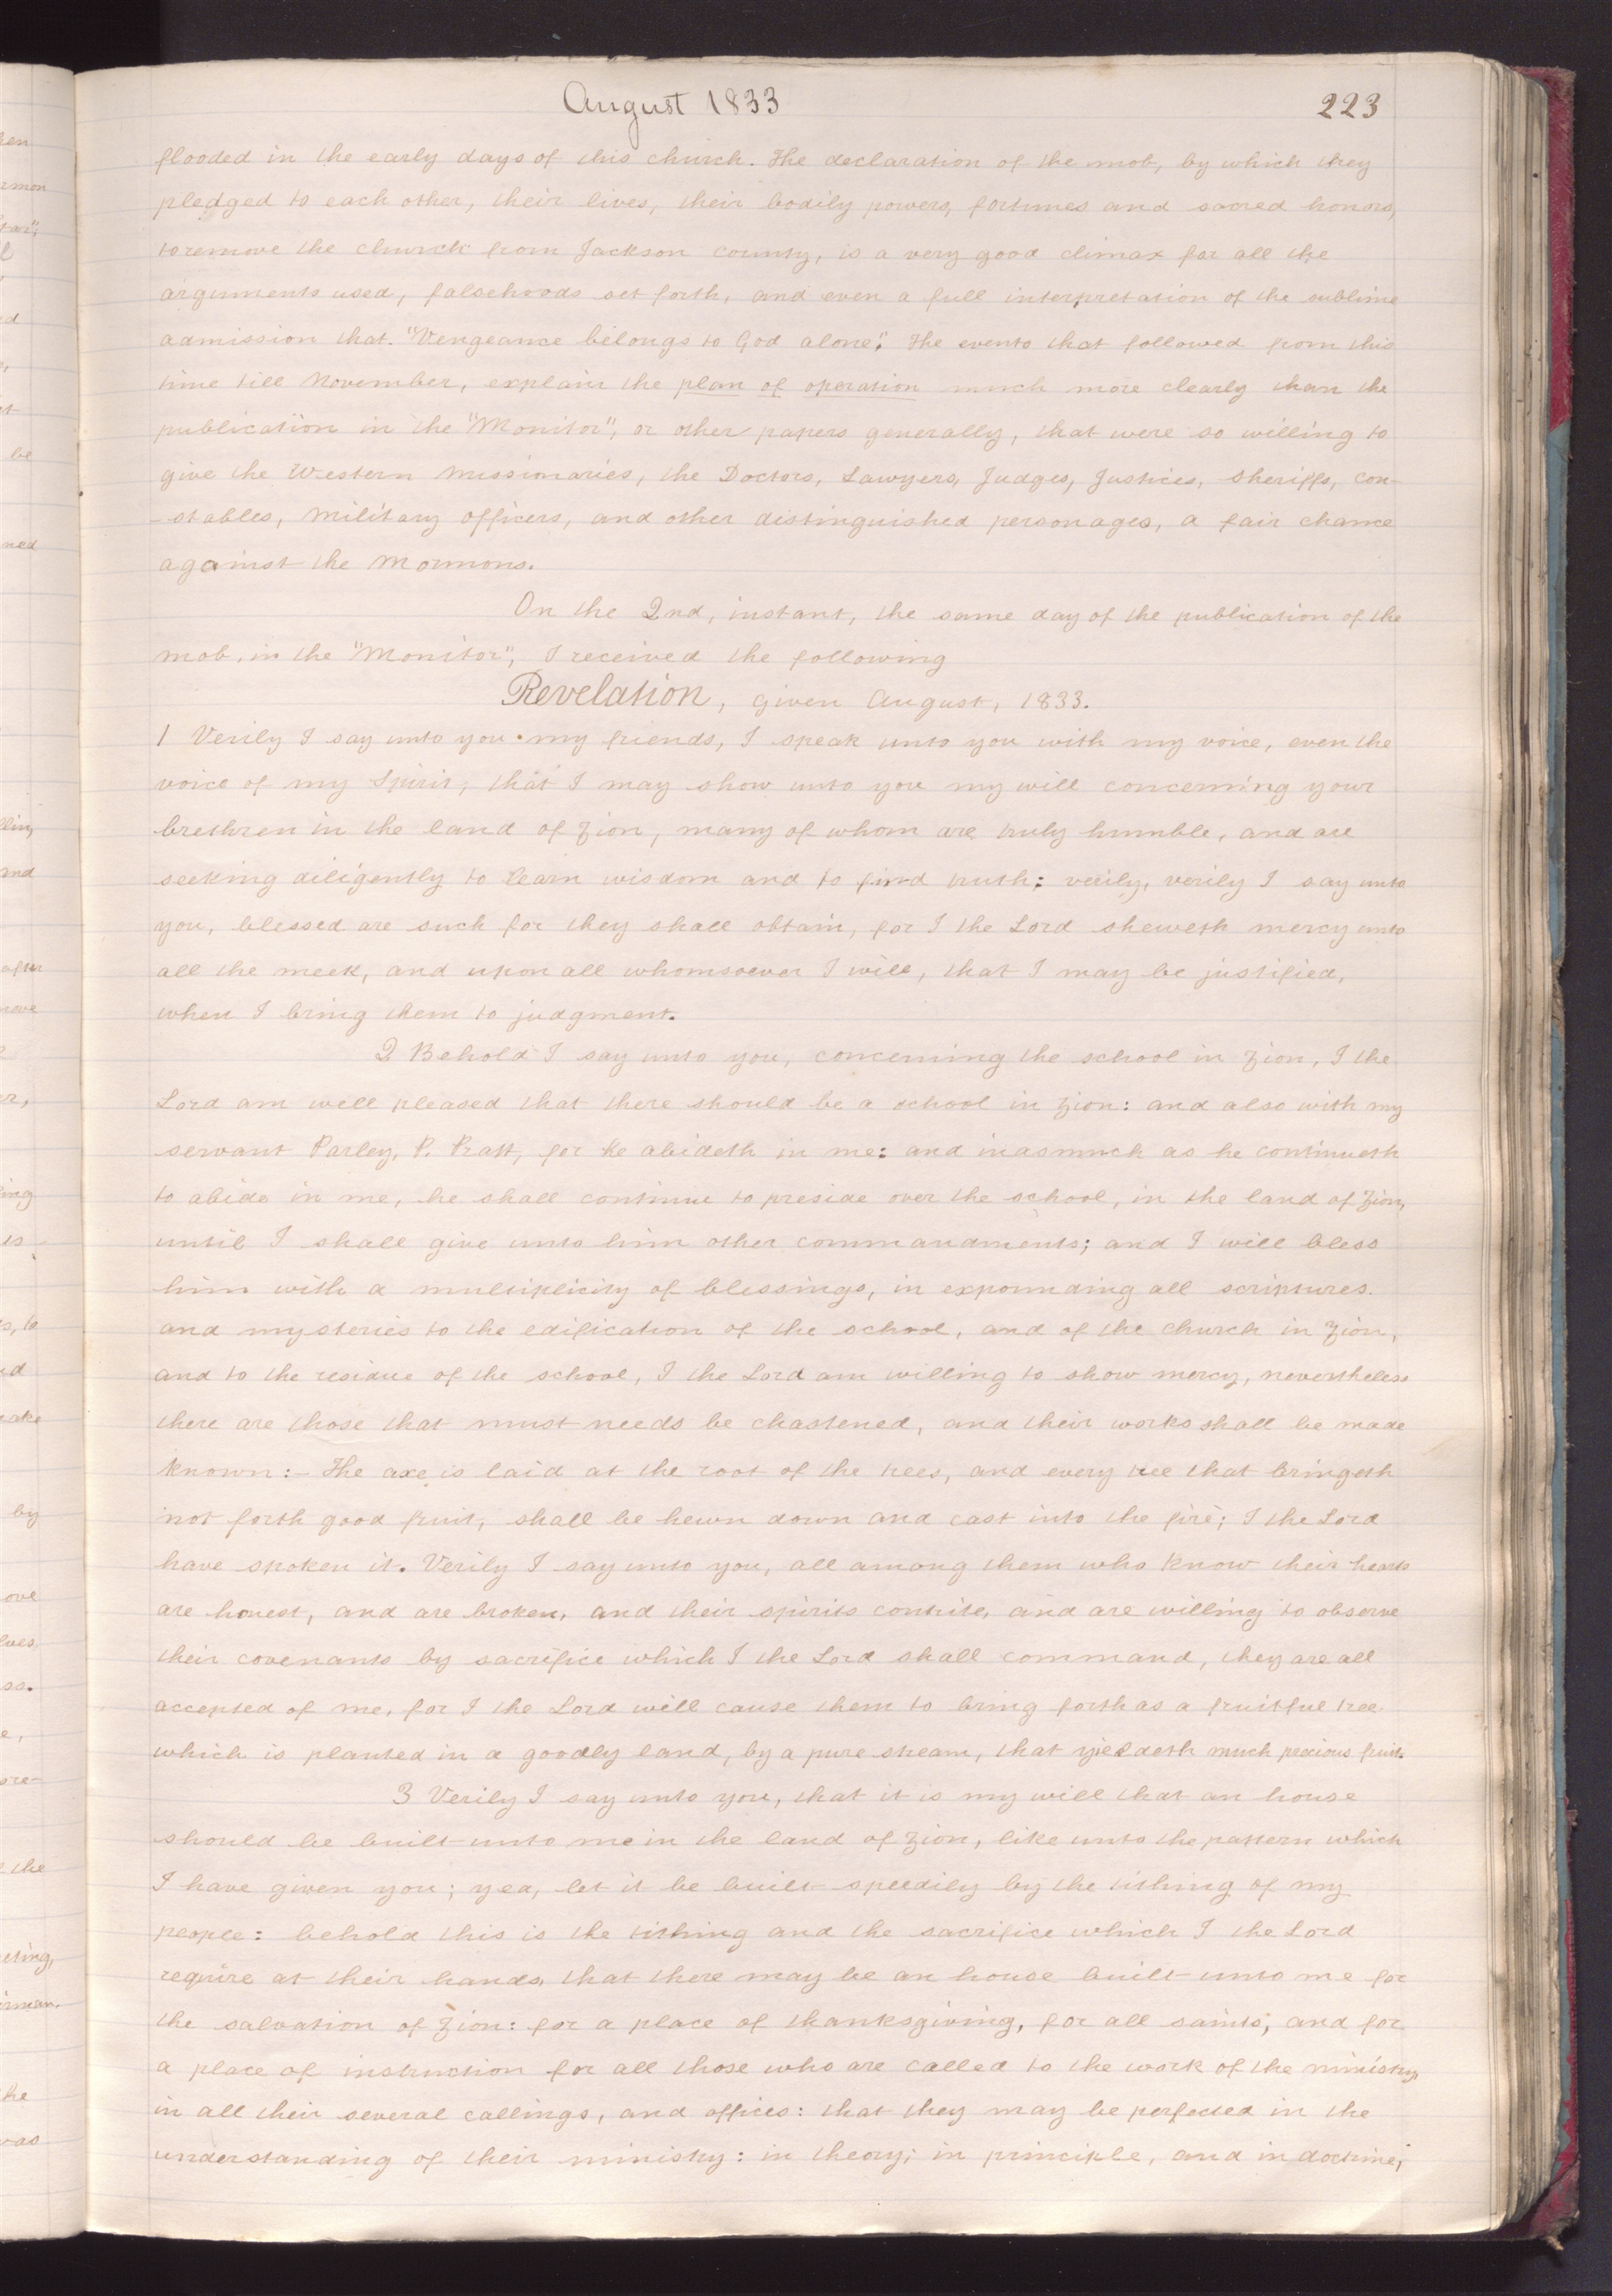 August 1833
223
flooded in the early days of this church. The declaration of the mob, by which they
pledged to each other, their lives, their bodily powers, fortunes and sacred honors,
to remove the church from Jackson county, is a very good climax for all the
arguments used, falsehoods set forth, and even a full interpretation of the sublime
admission that. "Vengeance belongs to God alone". The events that followed from this
time till November, explain the plan of operation much more clearly than the
publication in the "Monitor", or other papers generally, that were so willing to
give the Western Missionaries, the Doctors, Lawyers, Judges, Justices, Sheriffs, con-
-stables, Military officers, and other distinguished personages, a fair chance
against the Mormons.
On the 2nd, instant, the same day of the publication of the
mob, in the "Monitor", I received the following
Revelation, given August, 1833.
1 Verily I say unto you my friends, I speak unto you with my voice, even the
voice of my Spirit, that I may show unto you my will concerning your
brethren in the land of Zion, many of whom are truly humble, and are
seeking diligently to learn wisdom and to find truth: verily, verily I say unto
you, blessed are such for they shall obtain, for I the Lord sheweth mercy unto
all the meek, and upon all whomsoever I will, that I may be justified,
when I bring them to judgment.
2 Behold I say unto you, concerning the school in Zion, I the
Lord am well pleased that there should be a school in Zion: and also with my
servant Parley, P. Pratt, for he abideth in me: and inasmuch as he continueth
to abide in me, he shall continue to preside over the school, in the land of Zion,
until I shall give unto him other commandments; and I will bless
him with a multiplicity of blessings, in expounding all scriptures.
and mysteries to the edification of the school, and of the church in Zion,
and to the residue of the school, I the Lord am willing to show mercy, nevertheless
there are those that must needs be chastened, and their works shall be made
known:- The axe is laid at the root of the trees, and every tree that bringeth
not forth good fruit, shall be hewn down and cast into the fire; I the Lord
have spoken it. Verily I say unto you, all among them who know their hearts
are honest, and are broken, and their spirits contrite, and are willing to observe
their covenants by sacrifice which I the Lord shall command, they are all
accepted of me, for I the Lord will cause them to bring forth as a fruitful tree
which is planted in a goodly land, by a pure stream, that yieldeth much precious fruit.
3 Verily I say unto you, that it is my will that an house
should be built unto me in the land of Zion, like unto the pattern which
I have given you; yea, let it be built speedily by the tithing of my
people: behold this is the tithing and the sacrifice which I the Lord
require at their hands, that there may be an house built unto me for
the salvation of Zion: for a place of thanksgiving, for all saints, and for
a place of instruction for all those who are called to the work of the ministry,
in all their several callings, and offices: that they may be perfected in the
understanding of their ministry: in theory; in principle, and in doctrine;